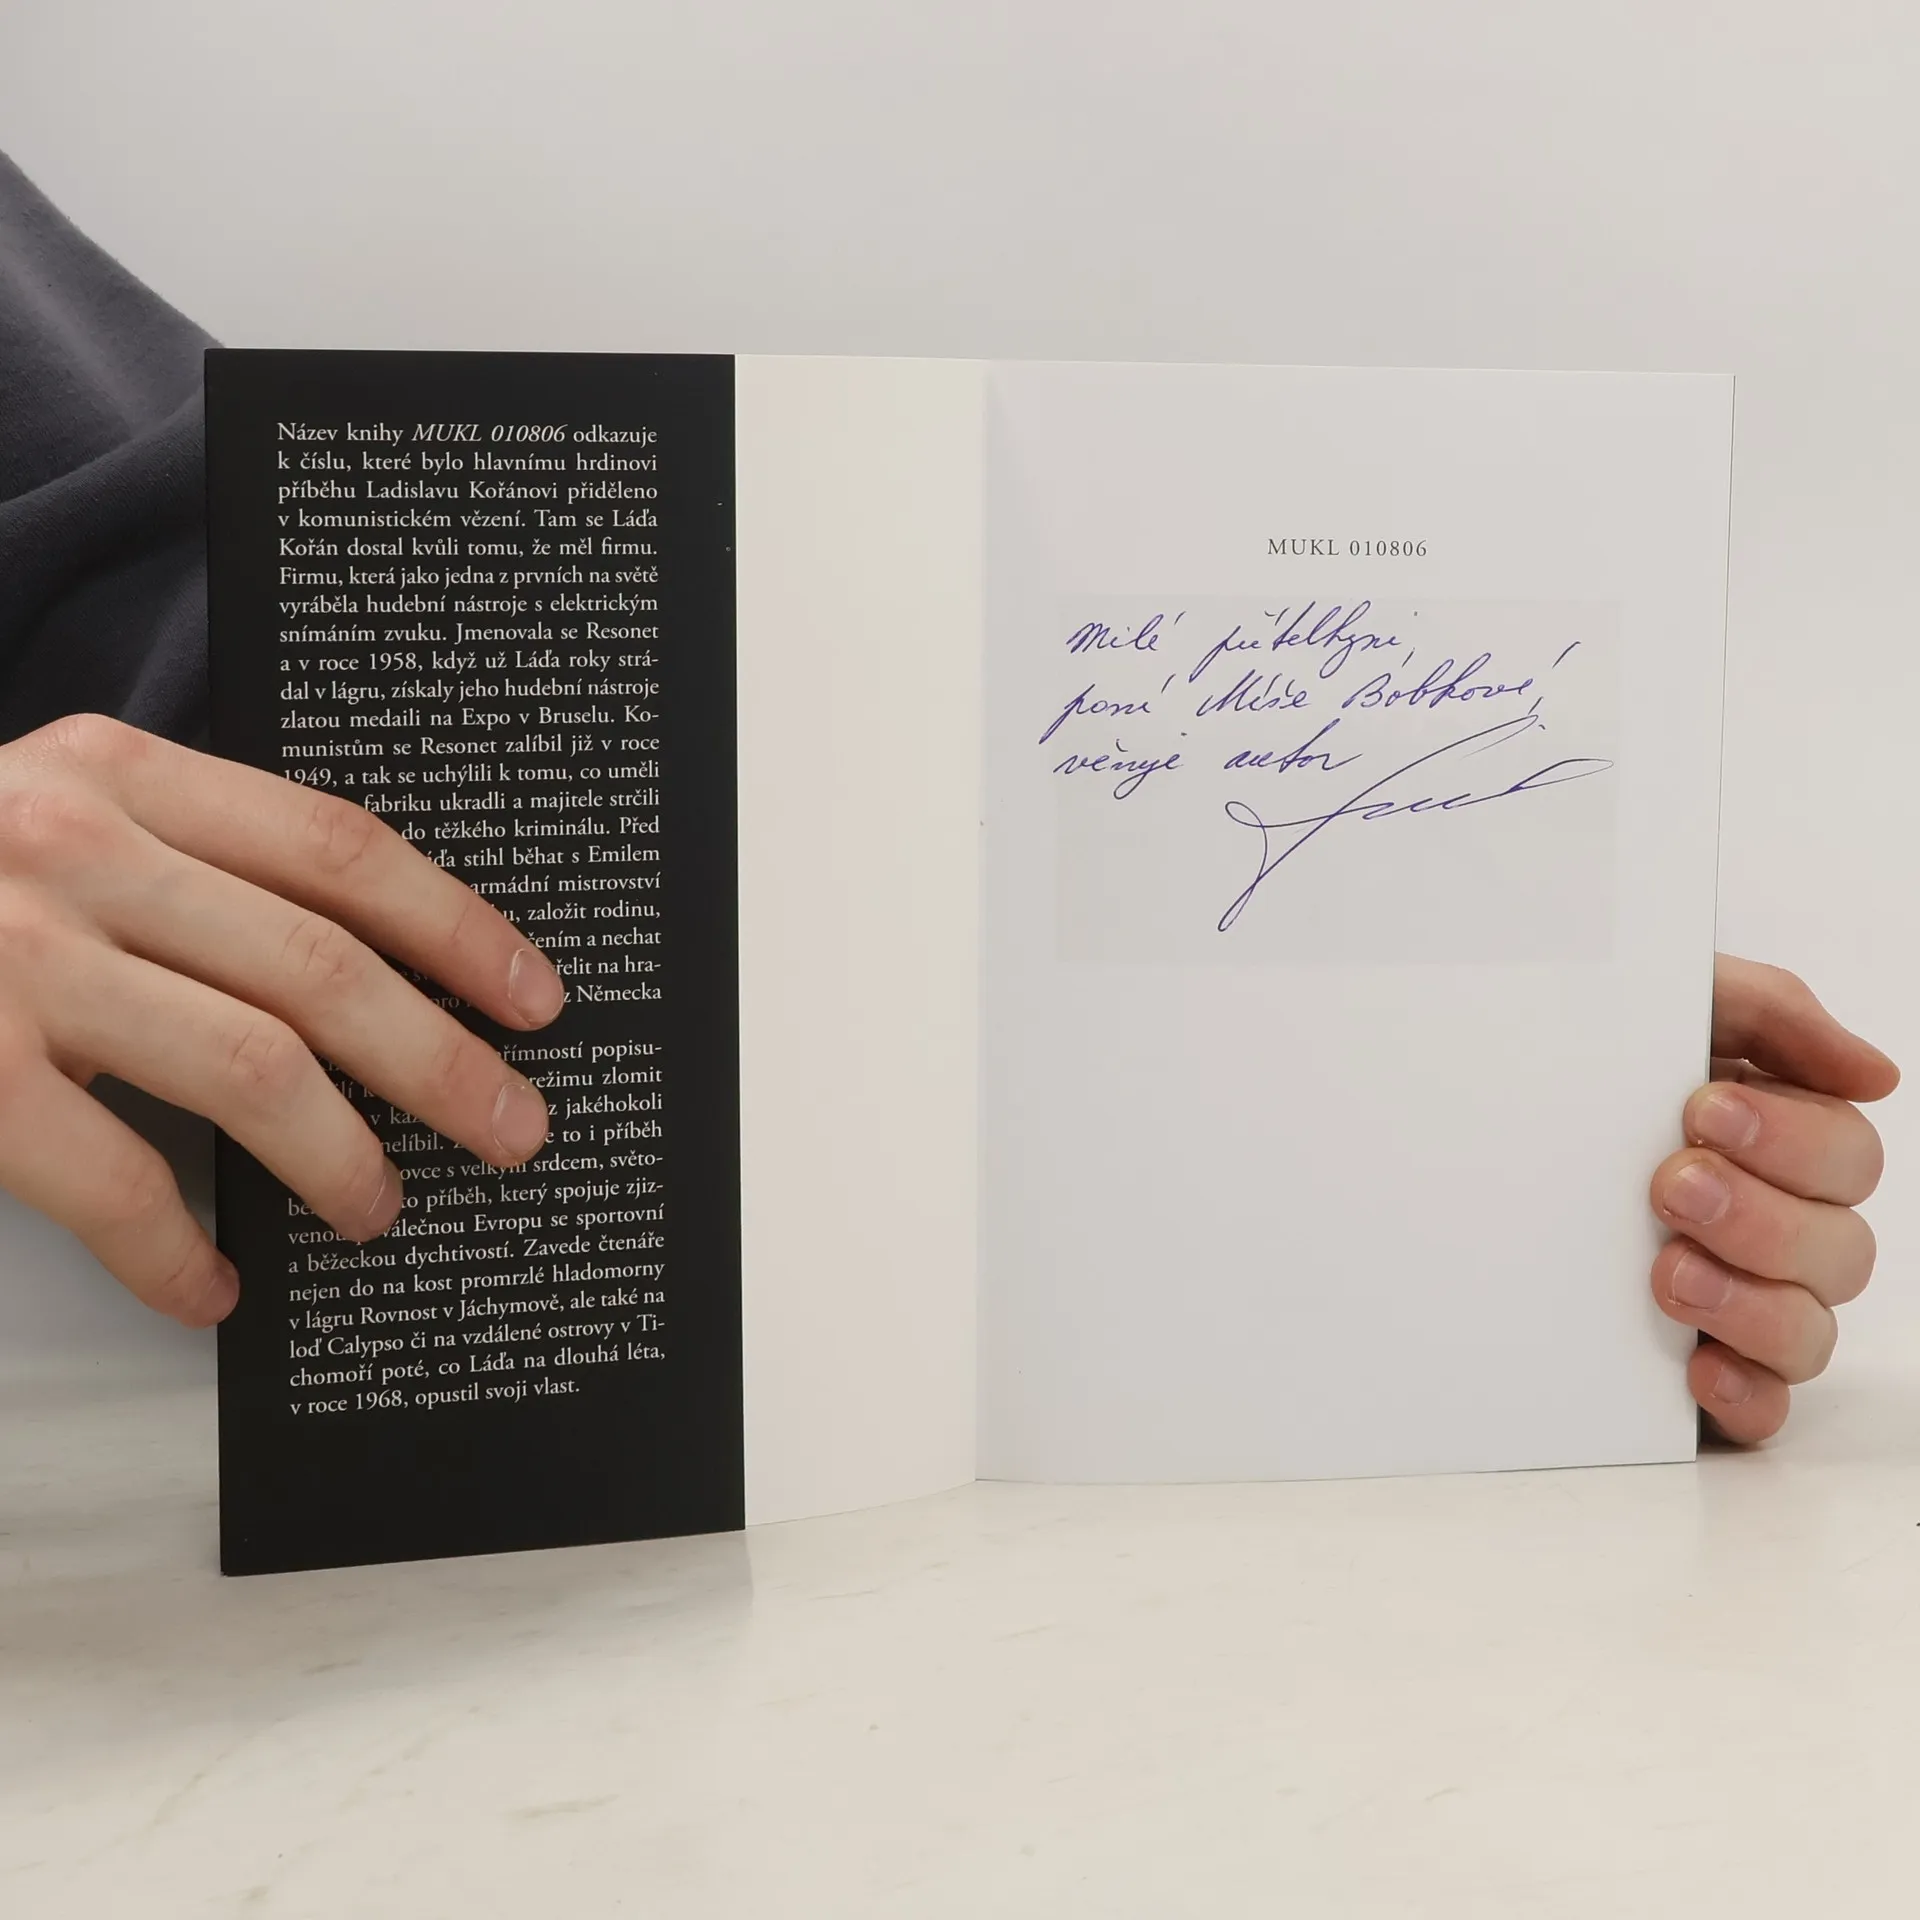 Název knihy MUKL 010806 odkazuje
k číslu, které bylo hlavnímu hrdinovi
příběhu Ladislavu Kořánovi přiděleno
v komunistickém vězení. Tam se Láďa
Kořán dostal kvůli tomu, že měl firmu.
Firmu, která jako jedna z prvních na světě
vyráběla hudební nástroje s elektrickým
snímáním zvuku. Jmenovala se Resonet
a v roce 1958, když už Láďa roky strá-
dal v lágru, získaly jeho hudební nástroje
zlatou medaili na Expo v Bruselu. Ko-
munistům se Resonet zalíbil již v roce
1949, a tak se uchýlili k tomu, co uměli
fabriku ukradli a majitele strčili
do těžkého kriminálu. Před
stihl běhat s Emilem
armádní mistrovství
založit rodinu,
a nechat
na hra-
z Německa
popisu-
režimu zlomit
z jakéhokoli
to i příběh
s velkým srdcem, světo-
příběh, který spojuje zjiz-
Evropu se sportovní
a běžeckou dychtivostí. Zavede čtenáře
nejen do na kost promrzlé hladomorny
v lágru Rovnost v Jáchymově, ale také na
loď Calypso či na vzdálené ostrovy v Ti-
chomoří poté, co Láďa na dlouhá léta,
v roce 1968, opustil svoji vlast.
MUKL 010806
Milé přítelkyni,
paní Míše Bobkové,
věnuje autor